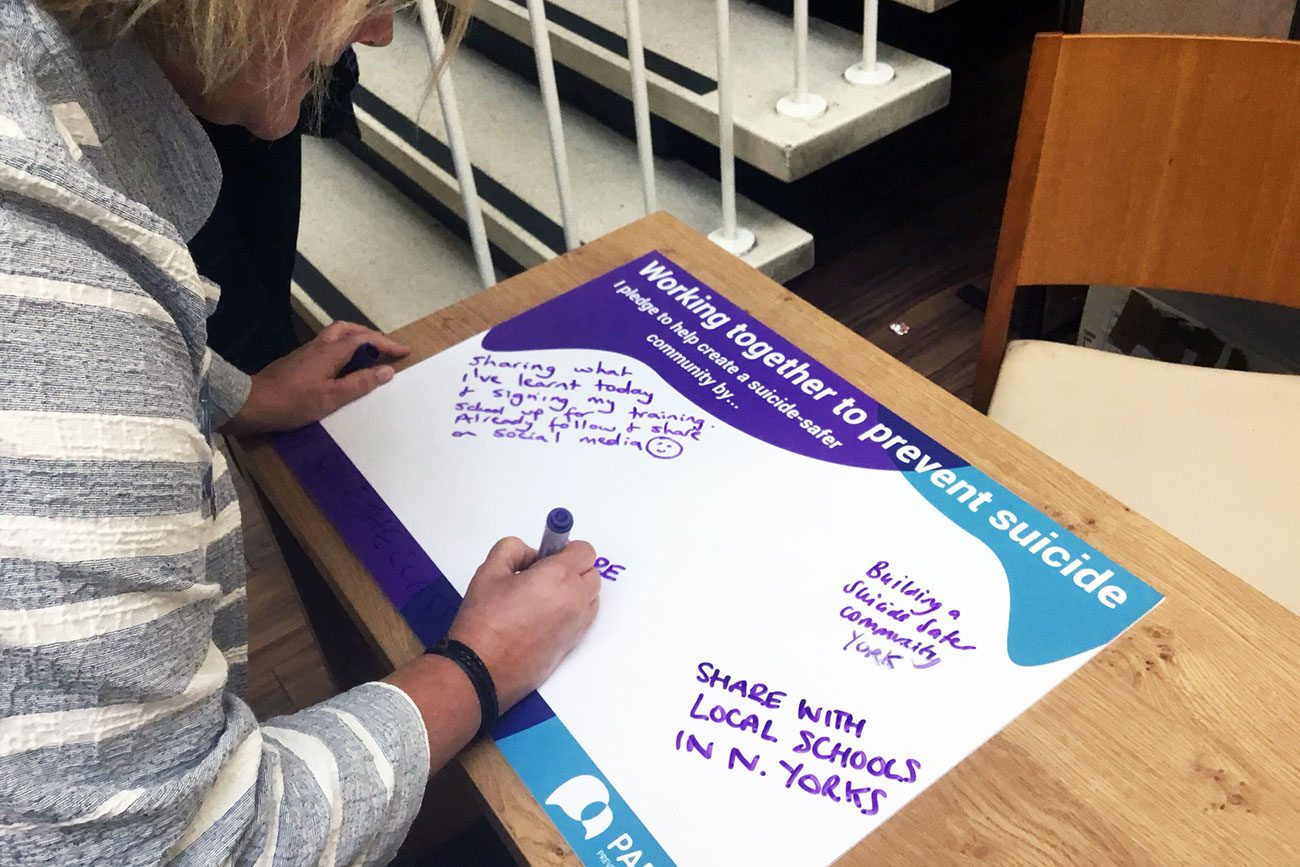 Working together to prevent suicide
I pledge to help create a suicide-safer
community by...
Sharing what
I've learnt today
& signing my training.
school up for
Already follow & share
on social media
Building a
suicide safer
community
YORK
SHARE WITH
LOCAL SCHOOLS
IN N. YORKS
PAP